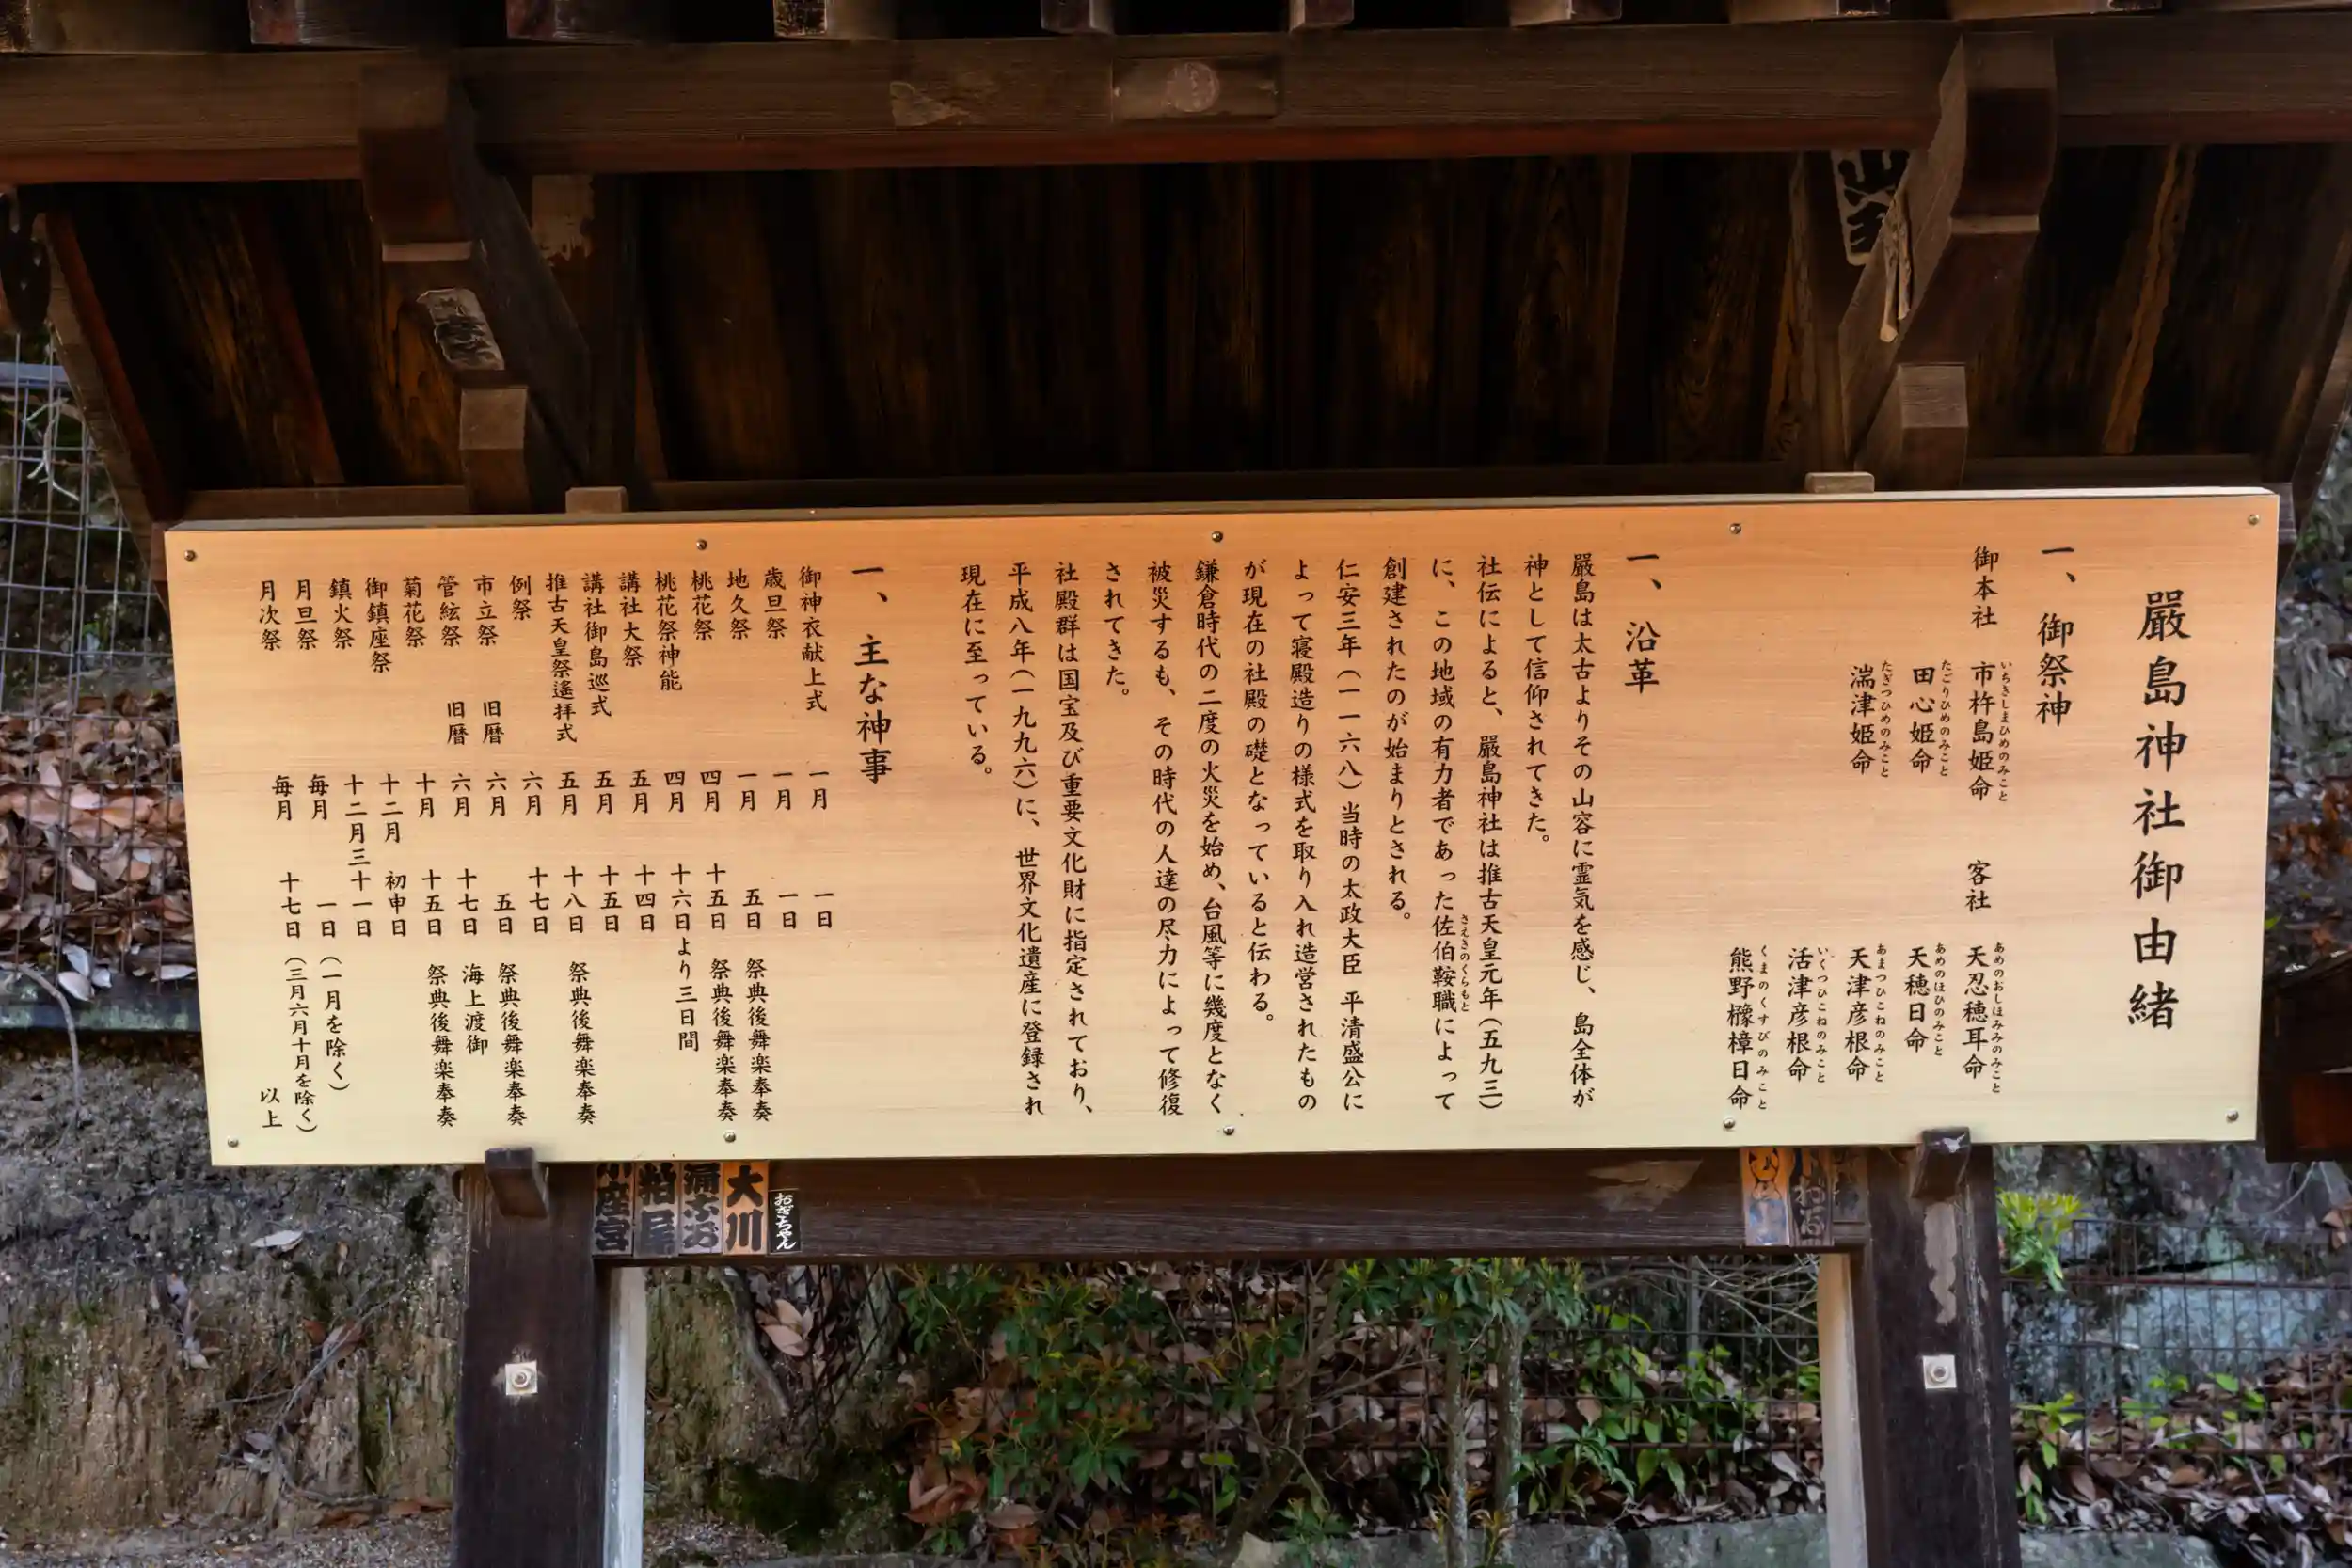 嚴島神社御由緒
一、御祭神
御本社 市杵島姫命 客社 天忍穂耳命
いちきしまひめのみこと あめのおしほみみのみこと
田心姫命 天穂日命
たごりひめのみこと あめのほひのみこと
湍津姫命 天津彦根命
たぎつひめのみこと あまつひこねのみこと
活津彦根命
いくつひこねのみこと
熊野櫲樟日命
くまのくすびのみこと
一、沿革
嚴島は太古よりその山容に霊気を感じ、島全体が
神として信仰されてきた。
社伝によると、嚴島神社は推古天皇元年(五九三)
に、この地域の有力者であった佐伯鞍職によって
さえきのくらもと
創建されたのが始まりとされる。
仁安三年(一一六八)当時の太政大臣 平清盛公に
よって寝殿造りの様式を取り入れ造営されたもの
が現在の社殿の礎となっていると伝わる。
鎌倉時代の二度の火災を始め、台風等に幾度となく
被災するも、その時代の人達の尽力によって修復
されてきた。
社殿群は国宝及び重要文化財に指定されており、
平成八年(一九九六)に、世界文化遺産に登録され
現在に至っている。
一、主な神事
御神衣献上式 一月 一日
歳旦祭 一月 一日
地久祭 一月 五日 祭典後舞楽奉奏
桃花祭 四月 十五日 祭典後舞楽奉奏
桃花祭神能 四月 十六日より三日間
講社大祭 五月 十四日
講社御島巡式 五月 十五日
推古天皇祭遙拝式 五月 十八日 祭典後舞楽奉奏
例祭 六月 十七日
市立祭 旧暦 六月 五日 祭典後舞楽奉奏
管絃祭 旧暦 六月 十七日 海上渡御
菊花祭 十月 十五日 祭典後舞楽奉奏
御鎮座祭 十二月 初申日
鎮火祭 十二月三十一日
月旦祭 毎月 一日(一月を除く)
月次祭 毎月 十七日(三月六月十月を除く)
以上
大川
おぎちゃん